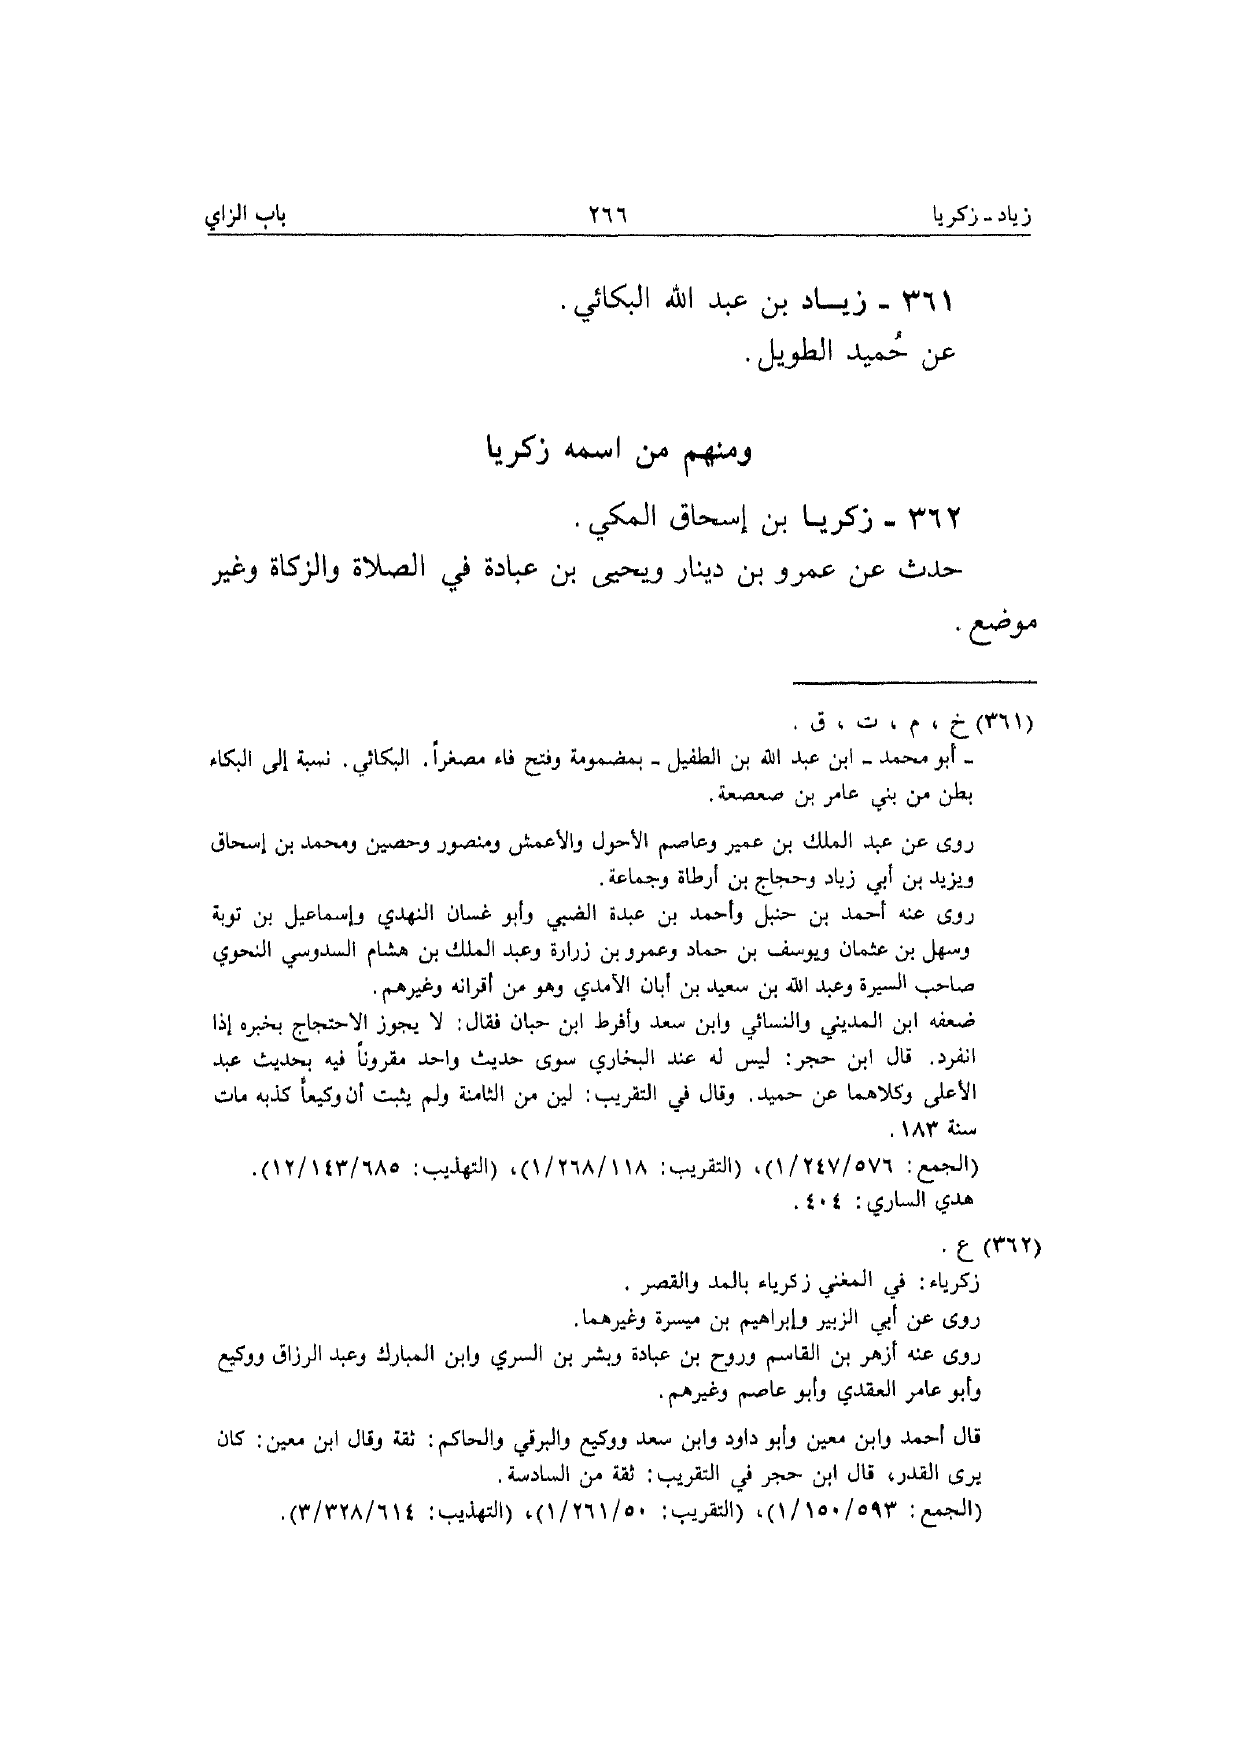 زياد - زكريا ٢٦٦ باب الزاي
٣٦١ - زيـاد بن عبد الله البكائي .
عن حُميد الطويل .
ومنهم من اسمه زكريا
٣٦٢ - زكريـا بن إسحاق المكي .
حدث عن عمرو بن دينار ويحيى بن عبادة في الصلاة والزكاة وغير
موضع .
(٣٦١) خ ، م ، ت ، ق .
- أبو محمد - ابن عبد الله بن الطفيل - بمضمومة وفتح فاء مصغراً. البكائي. نسبة إلى البكاء
بطن من بني عامر بن صعصعة.
روى عن عبد الملك بن عمير وعاصم الأحول والأعمش ومنصور وحصين ومحمد بن إسحاق
ويزيد بن أبي زياد وحجاج بن أرطاة وجماعة.
روى عنه أحمد بن حنبل وأحمد بن عبدة الضبي وأبو غسان النهدي وإسماعيل بن توبة
وسهل بن عثمان ويوسف بن حماد وعمرو بن زرارة وعبد الملك بن هشام السدوسي النحوي
صاحب السيرة وعبد الله بن سعيد بن أبان الأمدي وهو من أقرانه وغيرهم.
ضعفه ابن المديني والنسائي وابن سعد وأفرط ابن حبان فقال: لا يجوز الاحتجاج بخبره إذا
انفرد. قال ابن حجر: ليس له عند البخاري سوى حديث واحد مقروناً فيه بحديث عبد
الأعلى وكلاهما عن حميد. وقال في التقريب: لين من الثامنة ولم يثبت أن وكيعاً كذبه مات
سنة ١٨٣ .
(الجمع: ١/٢٤٧/٥٧٦)، (التقريب: ١/٢٦٨/١١٨)، (التهذيب: ١٢/١٤٣/٦٨٥).
هدي الساري: ٤٠٤ .
(٣٦٢) ع .
زكرياء: في المغني زكرياء بالمد والقصر .
روى عن أبي الزبير وإبراهيم بن ميسرة وغيرهما.
روى عنه أزهر بن القاسم وروح بن عبادة وبشر بن السري وابن المبارك وعبد الرزاق ووكيع
وأبو عامر العقدي وأبو عاصم وغيرهم.
قال أحمد وابن معين وأبو داود وابن سعد ووكيع والبرقي والحاكم: ثقة وقال ابن معين: كان
يرى القدر، قال ابن حجر في التقريب: ثقة من السادسة.
(الجمع: ١/١٥٠/٥٩٣)، (التقريب: ١/٢٦١/٥٠)، (التهذيب: ٣/٣٢٨/٦١٤).